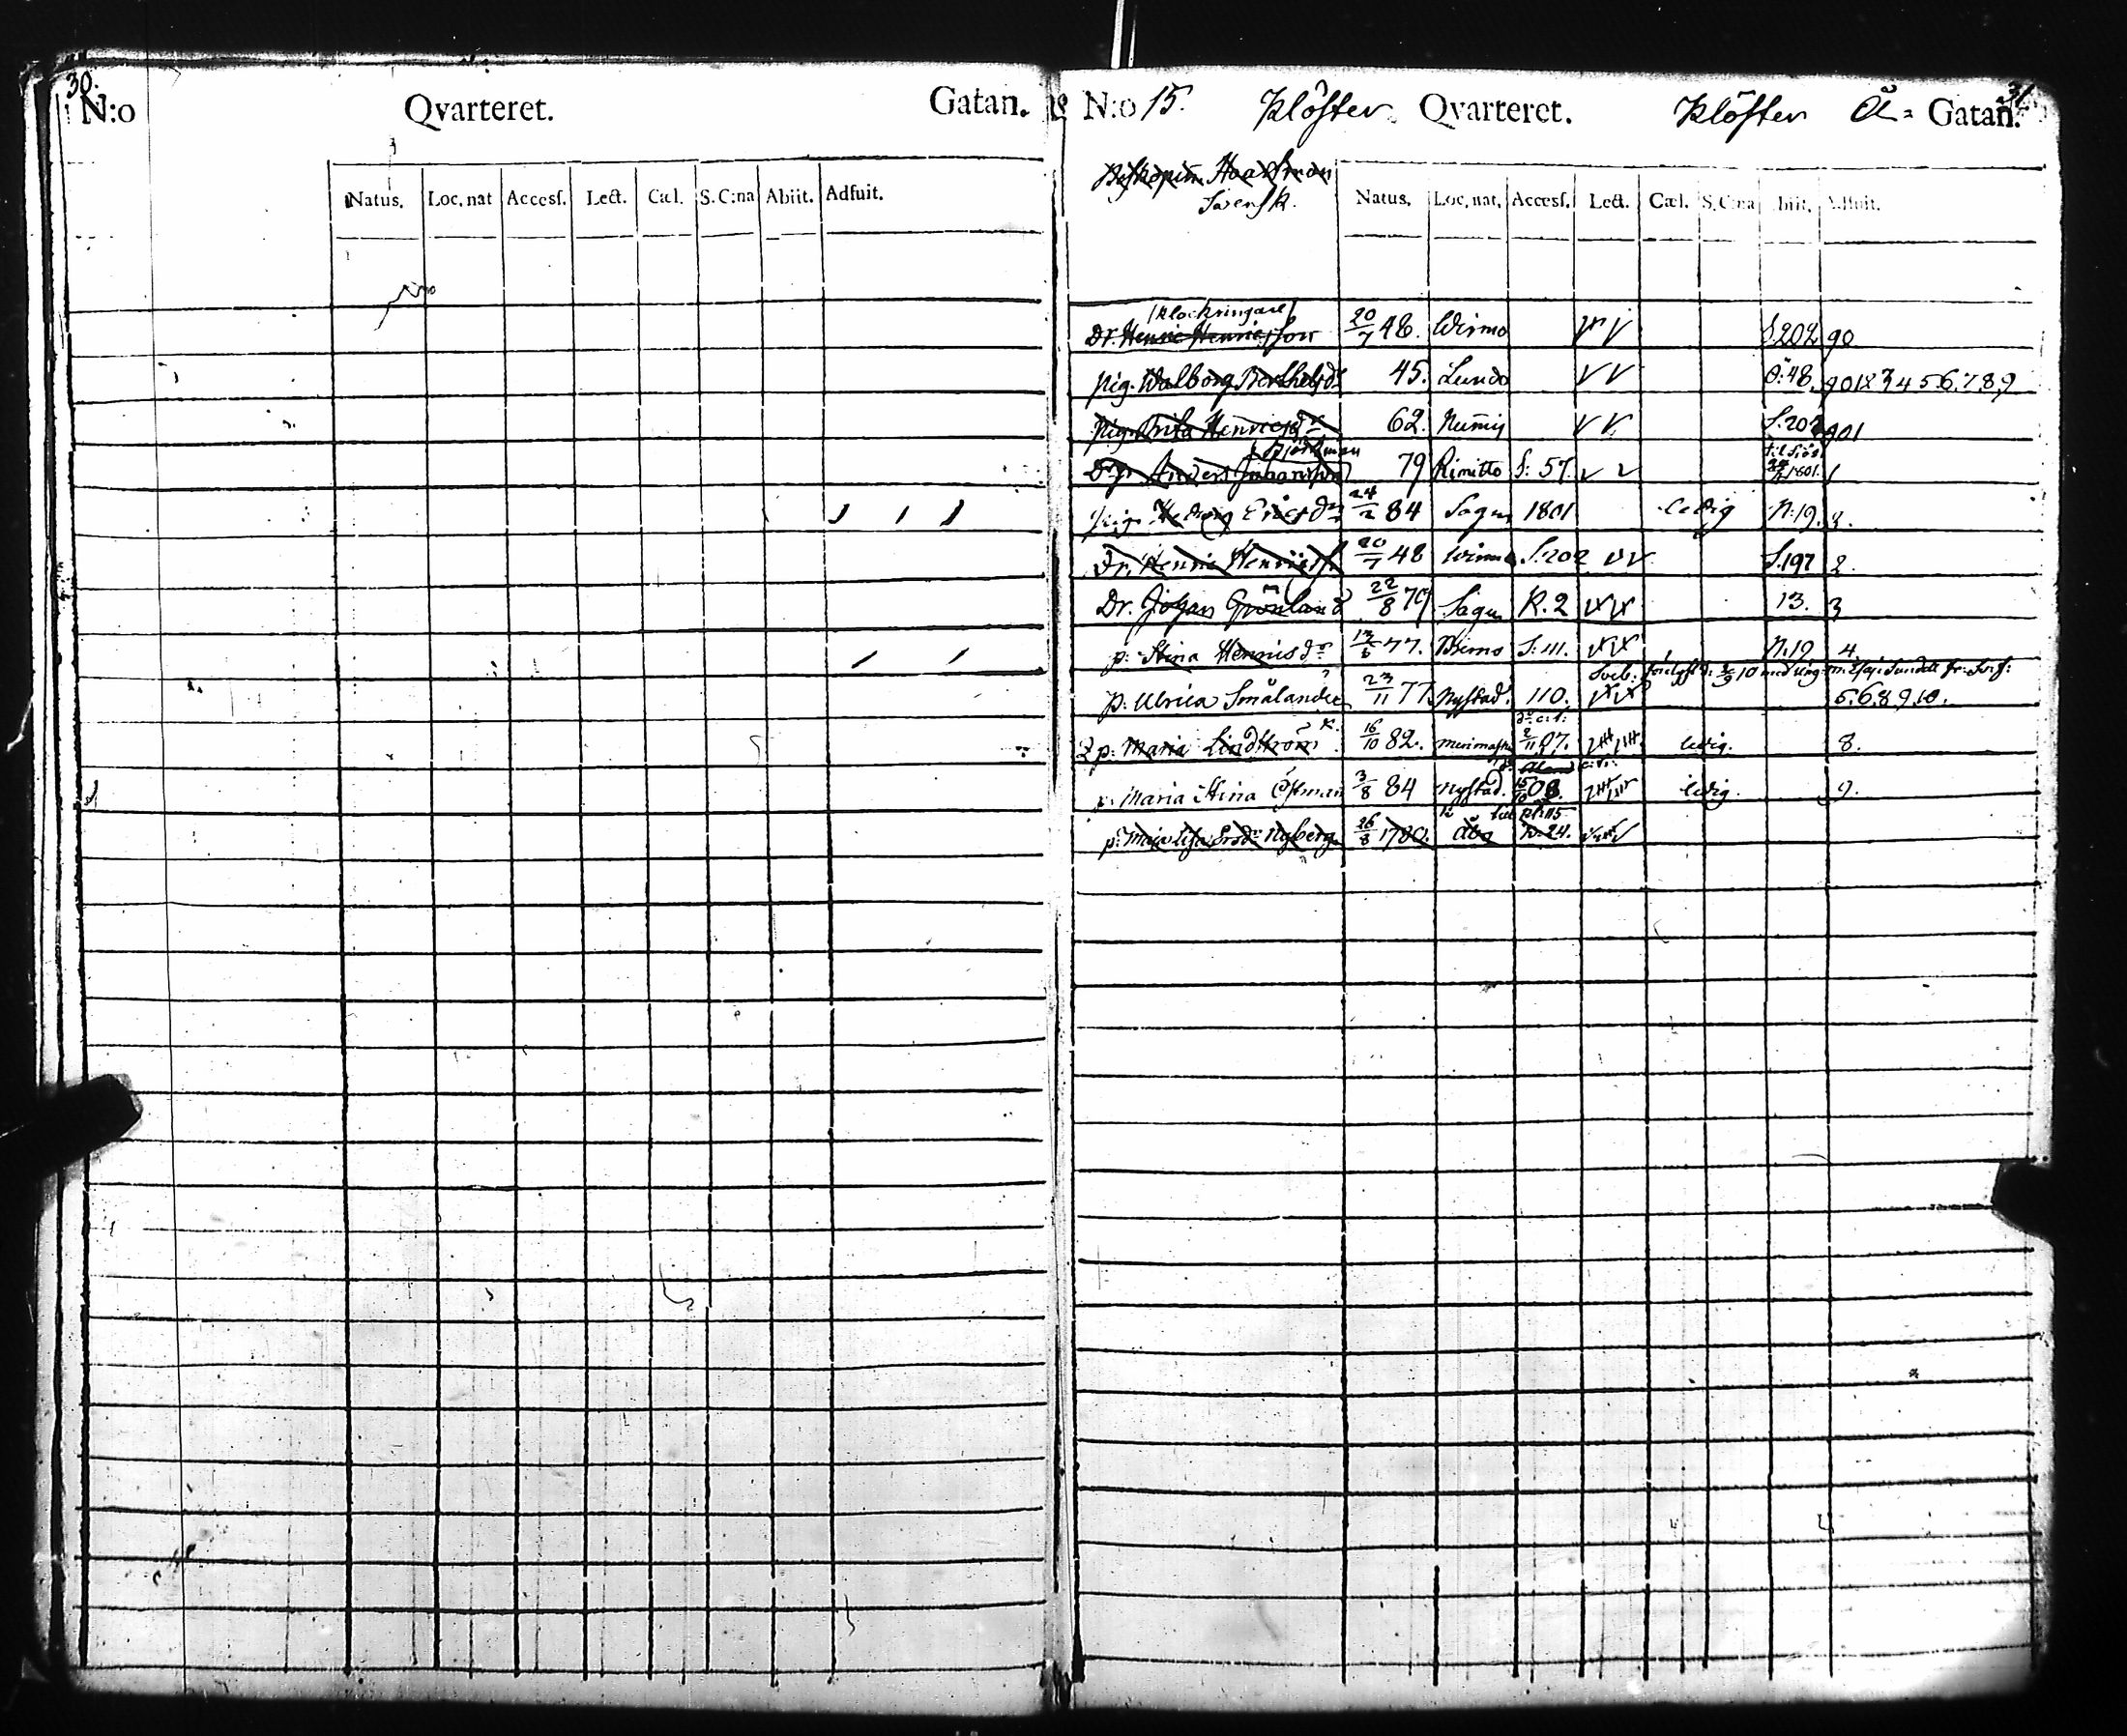 30.
N:o Qvarteret. Gatan.
Natus. Loc. nat Access. Lect. Cæl. S. C:na Abiit. Adfuit.
31
N:o 15. Klöster Qvarteret. Klöster Å= Gatan.
Svensk.
Natus. Loc. nat. Access. Lect. Cæl. S. C:na Abiit. Adfuit.
/klockringare/
Dr. Henric Henricsson 20/7 48. Wirmo S. 202 90
pig. Walborg Berthelsdr 45. Lundo Ö: 48. 9 0 1 2 3 4 5. 6. 7. 8. 9
pig. Brita Henricsdr 62. Numij S. 202 901
Björkman
Dr. Anders Johansson 79 Rimitto S: 57. til Siös 1801. 1
pig. Hedvig Ericsdr 24/2 84 Sagu 1801 ledig N: 19. 2.
Dr. Henric Henricss. 20/7 48 Wirmo S. 202 S. 197 2.
Dr. Johan Grönland 22/8 79 Sagu K. 2 13. 3
p: Stina Hennisdr 13/6 77. Bjerno S: 111. N. 19 4
p: Ulrica Smålander 23/11 77. Nystad. 110. 5. 6. 8. 9. 10.
p: Maria Lindström 16/10 82. Merimasku 2/11 07. ledig. 8.
p: Maria Stina Östman 3/8 84 Nystad. 15/10 08. ledig. 9.
p: Maja Lisa Nyberg 26/8 1780. Åbo N: 24.